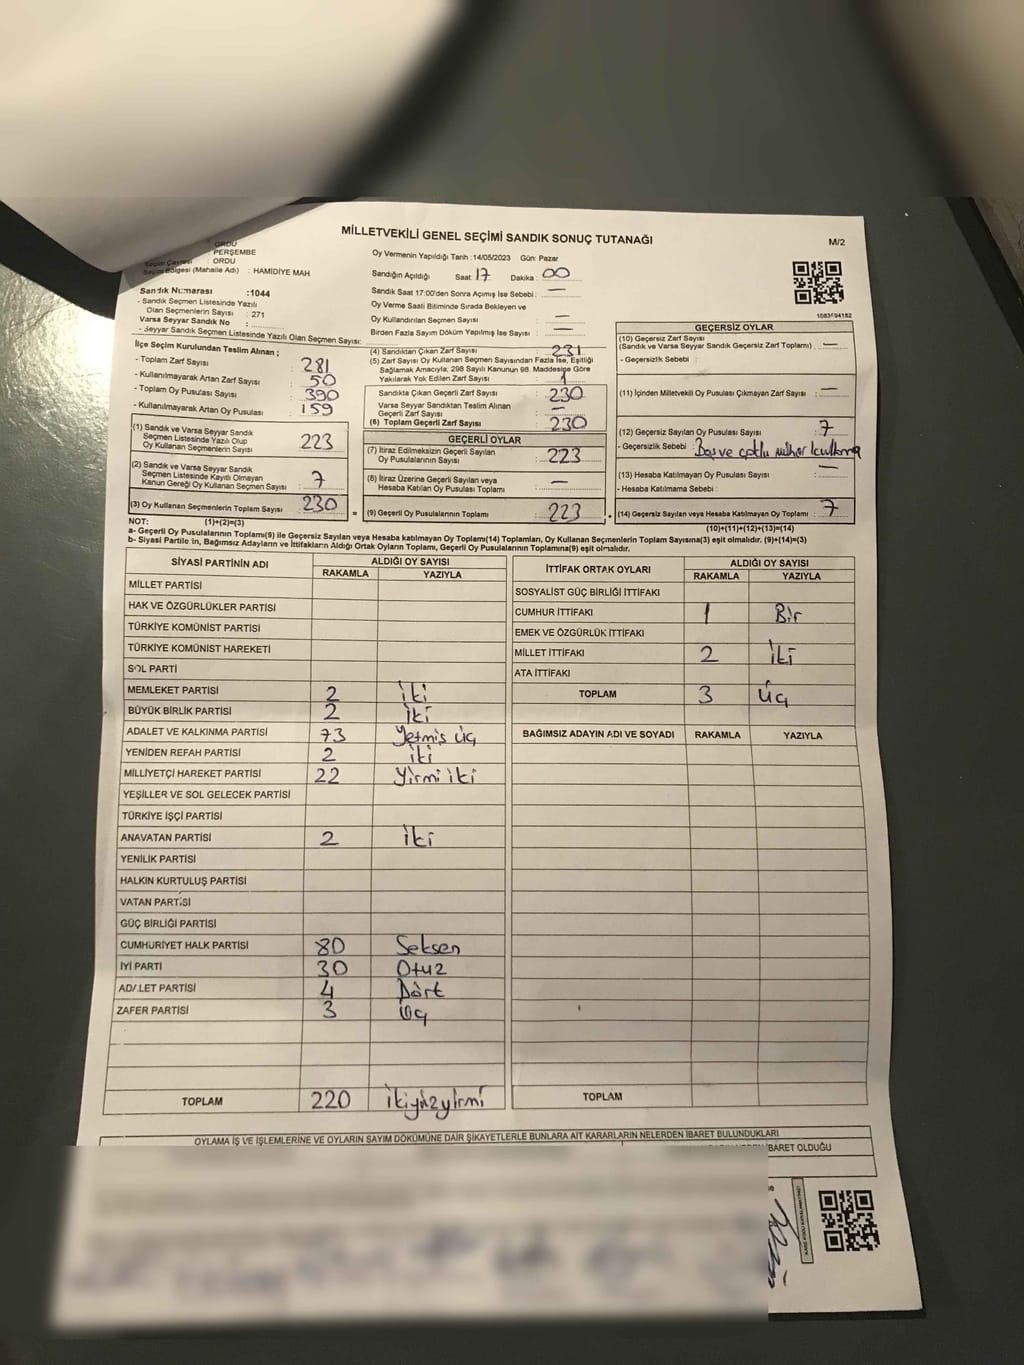 MİLLETVEKİLİ GENEL SEÇİMİ SANDIK SONUÇ TUTANAĞI
M/2
ORDU
PERŞEMBE
Seçim Çevresi : ORDU
Seçim Bölgesi (Mahalle Adı) : HAMİDİYE MAH
Sandık Numarası :1044
- Sandık Seçmen Listesinde Yazılı
Olan Seçmenlerin Sayısı : 271
Varsa Seyyar Sandık No :
- Seyyar Sandık Seçmen Listesinde Yazılı Olan Seçmen Sayısı:
Oy Vermenin Yapıldığı Tarih :14/05/2023 Gün: Pazar
Sandığın Açıldığı Saat: 17 Dakika : 00
Sandık Saat 17:00'den Sonra Açımış İse Sebebi : —
Oy Verme Saati Bitiminde Sırada Bekleyen ve
Oy Kullandırılan Seçmen Sayısı : —
Birden Fazla Sayım Döküm Yapılmış İse Sayısı : —
1083f94182
İlçe Seçim Kurulundan Teslim Alınan ;
- Toplam Zarf Sayısı : 281
- Kullanılmayarak Artan Zarf Sayısı : 50
- Toplam Oy Pusulası Sayısı : 390
- Kullanılmayarak Artan Oy Pusulası : 159
(1) Sandık ve Varsa Seyyar Sandık
Seçmen Listesinde Yazılı Olup
Oy Kullanan Seçmenlerin Sayısı : 223
(2) Sandık ve Varsa Seyyar Sandık
Seçmen Listesinde Kayıtlı Olmayan
Kanun Gereği Oy Kullanan Seçmen Sayısı : 7
(3) Oy Kullanan Seçmenlerin Toplam Sayısı : 230
(1)+(2)=(3)
(4) Sandıktan Çıkan Zarf Sayısı : 231
(5) Zarf Sayısı Oy Kullanan Seçmen Sayısından Fazla İse, Eşitliği
Sağlamak Amacıyla; 298 Sayılı Kanunun 98. Maddesine Göre
Yakılarak Yok Edilen Zarf Sayısı : 1
Sandıkta Çıkan Geçerli Zarf Sayısı : 230
Varsa Seyyar Sandıktan Teslim Alınan
Geçerli Zarf Sayısı : —
(6) Toplam Geçerli Zarf Sayısı : 230
GEÇERLİ OYLAR
(7) İtiraz Edilmeksizin Geçerli Sayılan
Oy Pusulalarının Sayısı : 223
(8) İtiraz Üzerine Geçerli Sayılan veya
Hesaba Katılan Oy Pusulası Toplamı : —
= (9) Geçerli Oy Pusulalarının Toplamı : 223 +
GEÇERSİZ OYLAR
(10) Geçersiz Zarf Sayısı
(Sandık ve Varsa Seyyar Sandık Geçersiz Zarf Toplamı) : —
- Geçersizlik Sebebi :
(11) İçinden Milletvekili Oy Pusulası Çıkmayan Zarf Sayısı : —
(12) Geçersiz Sayılan Oy Pusulası Sayısı : 7
- Geçersizlik Sebebi : Boş ve çoklu mühür kullanma
(13) Hesaba Katılmayan Oy Pusulası Sayısı : —
- Hesaba Katılmama Sebebi :
(14) Geçersiz Sayılan veya Hesaba Katılmayan Oy Toplamı : 7
(10)+(11)+(12)+(13)=(14)
NOT:
a- Geçerli Oy Pusulalarının Toplamı(9) ile Geçersiz Sayılan veya Hesaba katılmayan Oy Toplamı(14) Toplamları, Oy Kullanan Seçmenlerin Toplam Sayısına(3) eşit olmalıdır. (9)+(14)=(3)
b- Siyasi Partilerin, Bağımsız Adayların ve İttifakların Aldığı Ortak Oyların Toplamı, Geçerli Oy Pusulalarının Toplamına(9) eşit olmalıdır.
SİYASİ PARTİNİN ADI ALDIĞI OY SAYISI
RAKAMLA YAZIYLA
MİLLET PARTİSİ
HAK VE ÖZGÜRLÜKLER PARTİSİ
TÜRKİYE KOMÜNİST PARTİSİ
TÜRKİYE KOMÜNİST HAREKETİ
SOL PARTİ
MEMLEKET PARTİSİ 2 iki
BÜYÜK BİRLİK PARTİSİ 2 iki
ADALET VE KALKINMA PARTİSİ 73 Yetmiş üç
YENİDEN REFAH PARTİSİ 2 iki
MİLLİYETÇİ HAREKET PARTİSİ 22 Yirmi iki
YEŞİLLER VE SOL GELECEK PARTİSİ
TÜRKİYE İŞÇİ PARTİSİ
ANAVATAN PARTİSİ 2 iki
YENİLİK PARTİSİ
HALKIN KURTULUŞ PARTİSİ
VATAN PARTİSİ
GÜÇ BİRLİĞİ PARTİSİ
CUMHURİYET HALK PARTİSİ 80 Seksen
İYİ PARTİ 30 Otuz
ADALET PARTİSİ 4 Dört
ZAFER PARTİSİ 3 Üç
TOPLAM 220 ikiyüzyirmi
İTTİFAK ORTAK OYLARI ALDIĞI OY SAYISI
RAKAMLA YAZIYLA
SOSYALİST GÜÇ BİRLİĞİ İTTİFAKI
CUMHUR İTTİFAKI 1 Bir
EMEK VE ÖZGÜRLÜK İTTİFAKI
MİLLET İTTİFAKI 2 iki
ATA İTTİFAKI
TOPLAM 3 Üç
BAĞIMSIZ ADAYIN ADI VE SOYADI RAKAMLA YAZIYLA
TOPLAM
OYLAMA İŞ VE İŞLEMLERİNE VE OYLARIN SAYIM DÖKÜMÜNE DAİR ŞİKAYETLERLE BUNLARA AİT KARARLARIN NELERDEN İBARET BULUNDUKLARI
İBARET OLDUĞU